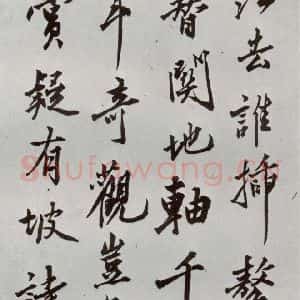 去誰插
關地軸千
年奇觀豈
賞疑有坡
Shufawang.cn